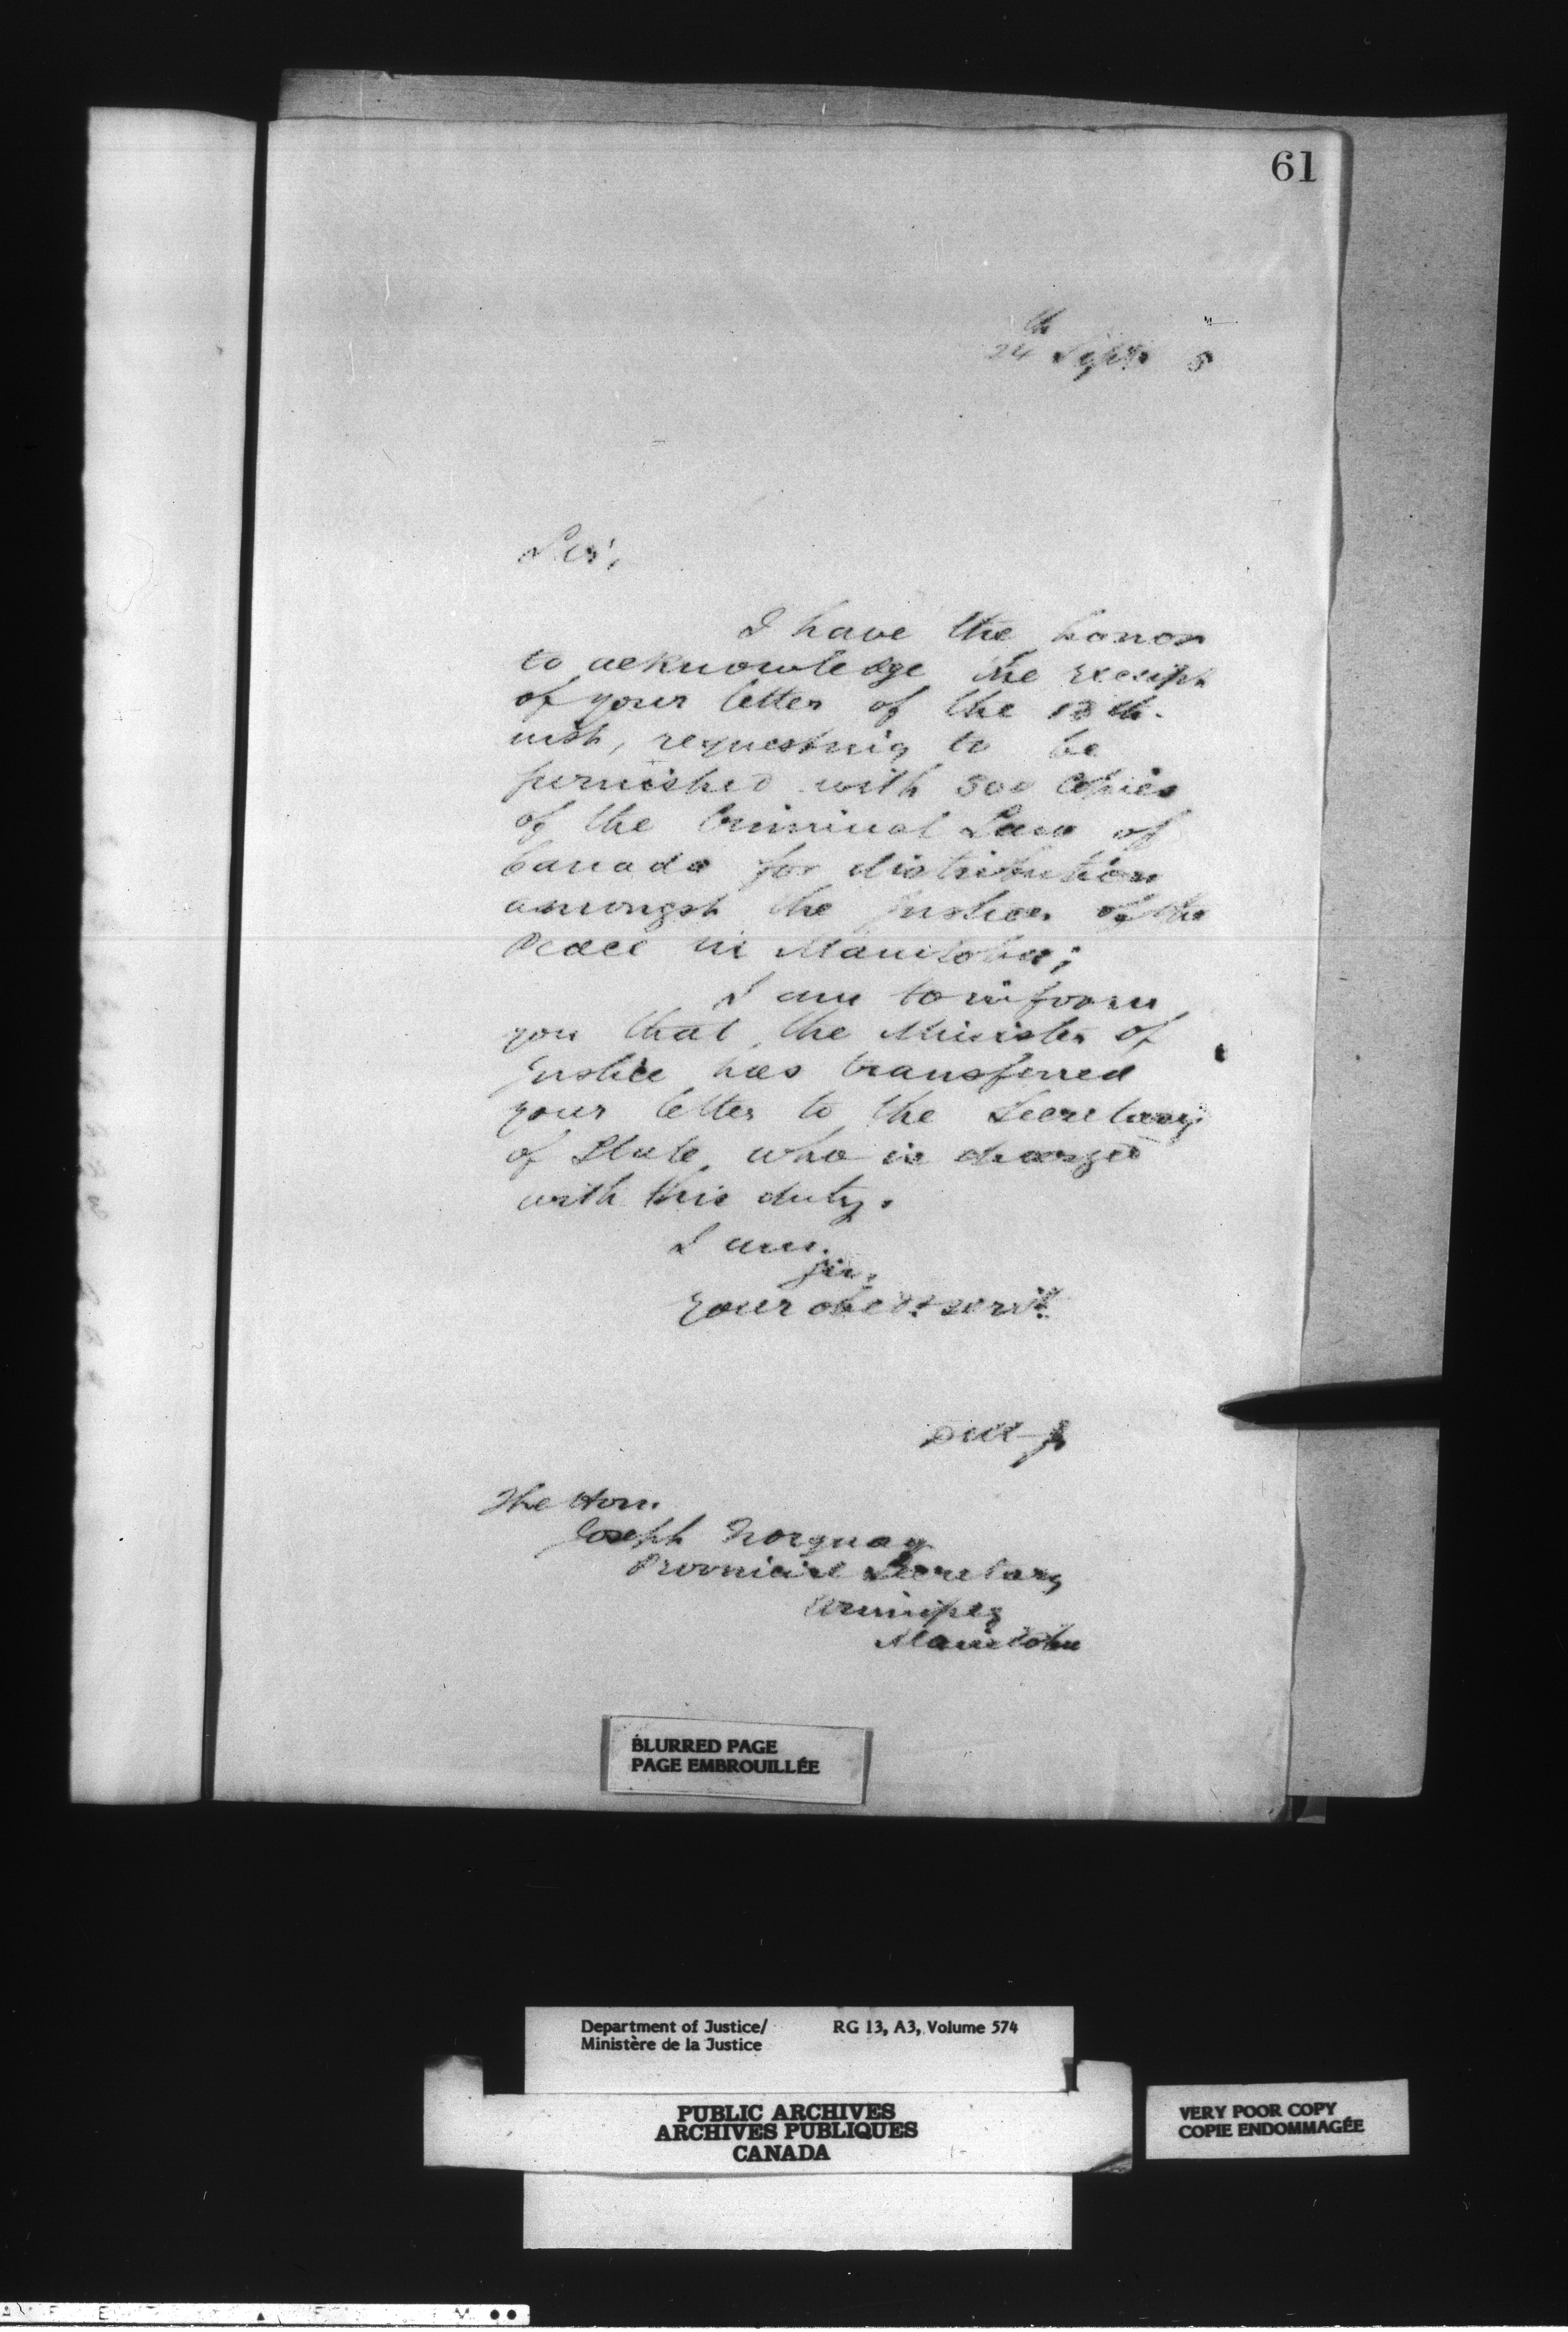 61
24th Sept. 5
Sir,
I have the honor
to acknowledge the receipt
of your letter of the 13th.
inst, requesting to be
furnished with 500 Copies
of the Criminal Law of
Canada for distribution
amongst the Justices of the
Peace in Manitoba;
I am to inform
you that the Minister of
Justice has transferred
your letter to the Secretary
of State, who is charged
with this duty.
I am.
Sir,
Your obedt servt
The Hon.
Joseph Norquay
Provincial Secretary
Winnipeg
Manitoba
BLURRED PAGE
PAGE EMBROUILLÉE
Department of Justice/ RG 13, A3, Volume 574
Ministère de la Justice
PUBLIC ARCHIVES
ARCHIVES PUBLIQUES
CANADA
VERY POOR COPY
COPIE ENDOMMAGÉE